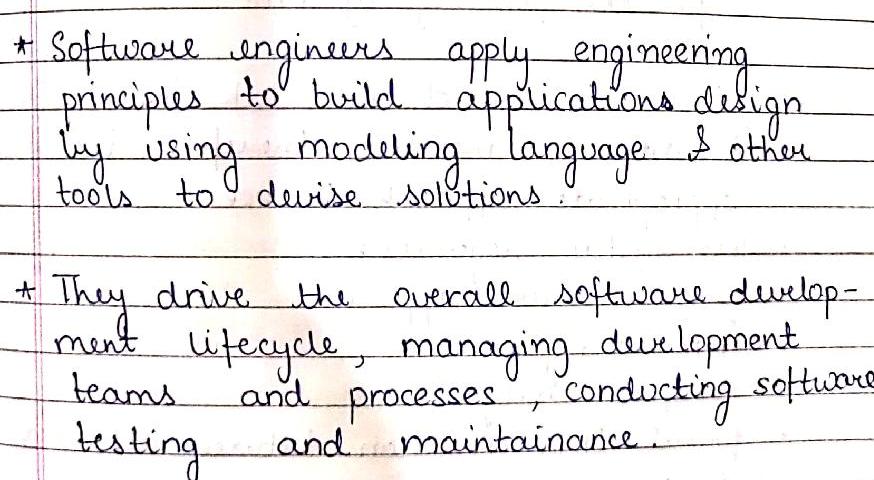 * Software engineers apply engineering
principles to build applications design
by using modeling language & other
tools to devise solutions.
* They drive the overall software develop-
ment lifecycle, managing development
teams and processes, conducting software
testing and maintainance.